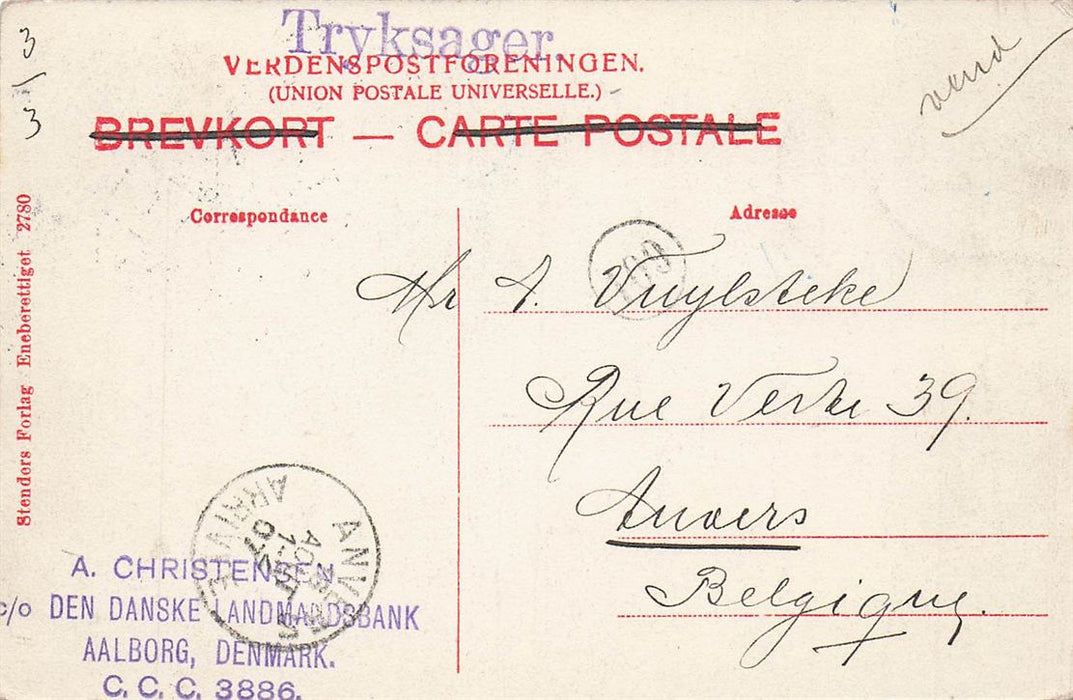 Tryksager.
VERDENSPOSTFORENINGEN.
(UNION POSTALE UNIVERSELLE.)
BREVKORT — CARTE POSTALE
vend
3/3
Stenders Forlag Eneberettiget 2780
Correspondance
Adresse
Mr A. Vuylsteke
Rue Verte 39.
Anvers
Belgique.
ANVERS
ARRIVEE
07
A. CHRISTENSEN.
c/o DEN DANSKE LANDMANDSBANK
AALBORG, DENMARK.
C. C. C. 3886.